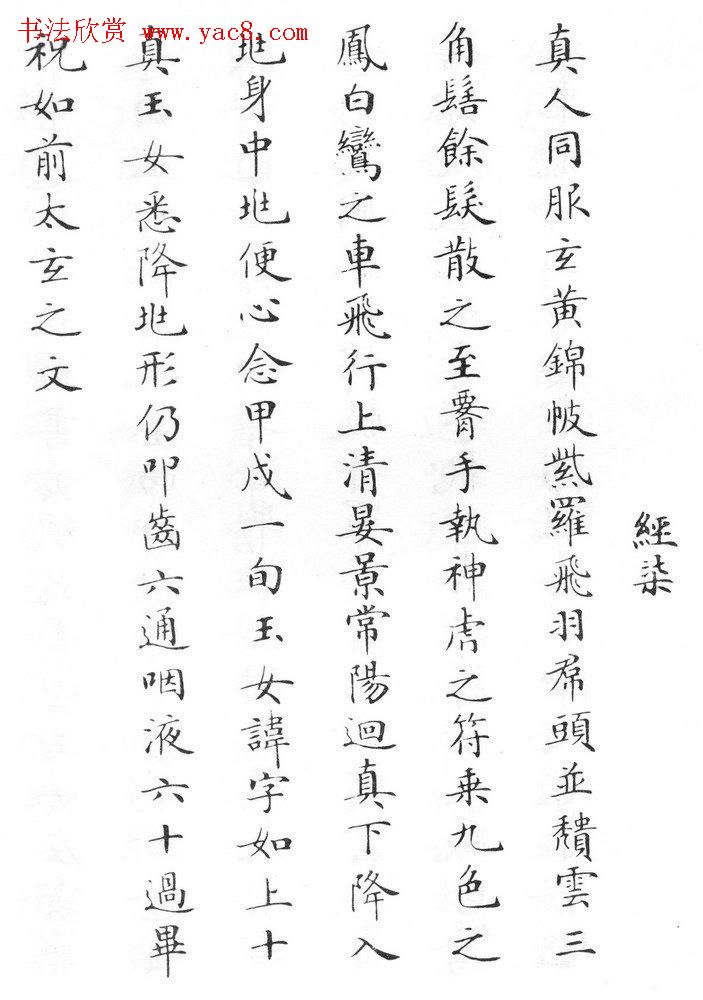 书法欣赏 www.yac8.com
經柒
真人同服玄黃錦帔紫羅飛羽帬頭並頹雲三
角髻餘髮散之至腰手執神虎之符乗九色之
鳳白鸞之車飛行上清晏景常陽迴真下降入
兆身中兆便心念甲戌一旬玉女諱字如上十
真玉女悉降兆形仍叩齒六通咽液六十過畢
祝如前太玄之文